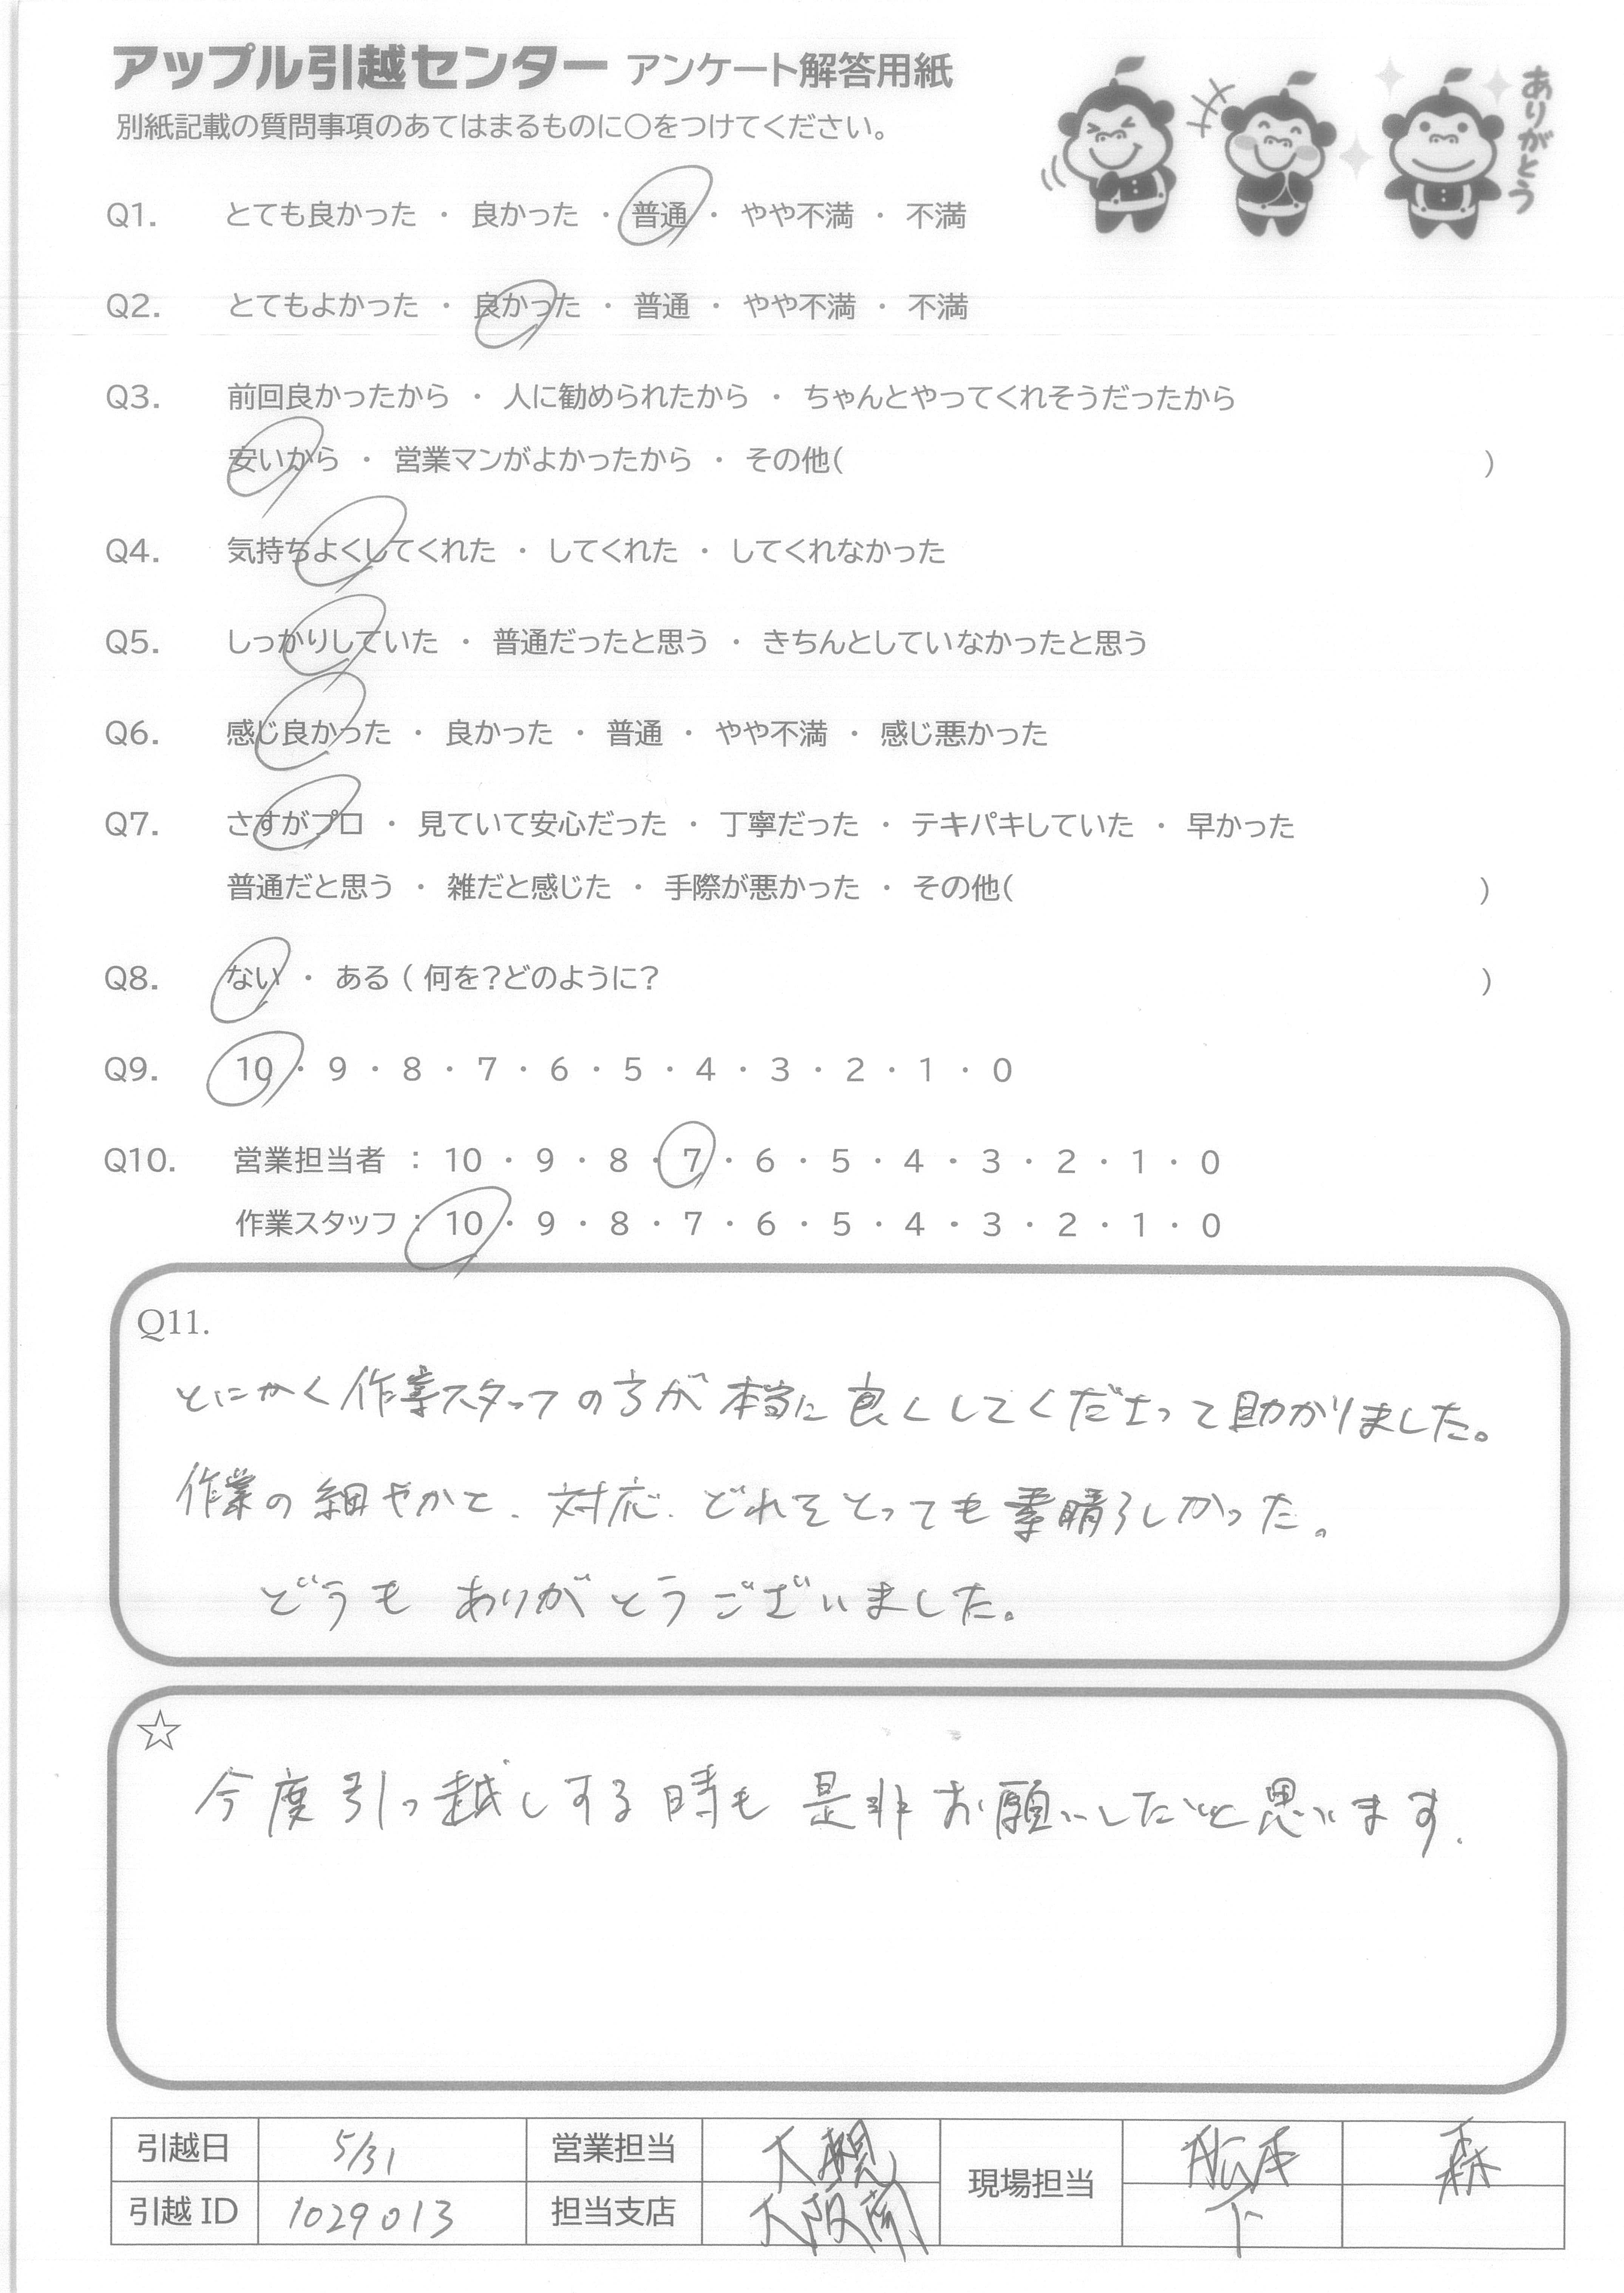 アップル引越センター アンケート解答用紙
別紙記載の質問事項のあてはまるものに〇をつけてください。
ありがとう
Q1. とても良かった ・ 良かった ・ 普通 ・ やや不満 ・ 不満
Q2. とてもよかった ・ 良かった ・ 普通 ・ やや不満 ・ 不満
Q3. 前回良かったから ・ 人に勧められたから ・ ちゃんとやってくれそうだったから
安いから ・ 営業マンがよかったから ・ その他( )
Q4. 気持ちよくしてくれた ・ してくれた ・ してくれなかった
Q5. しっかりしていた ・ 普通だったと思う ・ きちんとしていなかったと思う
Q6. 感じ良かった ・ 良かった ・ 普通 ・ やや不満 ・ 感じ悪かった
Q7. さすがプロ ・ 見ていて安心だった ・ 丁寧だった ・ テキパキしていた ・ 早かった
普通だと思う ・ 雑だと感じた ・ 手際が悪かった ・ その他( )
Q8. ない ・ ある ( 何を?どのように? )
Q9. 10 ・ 9 ・ 8 ・ 7 ・ 6 ・ 5 ・ 4 ・ 3 ・ 2 ・ 1 ・ 0
Q10. 営業担当者 : 10 ・ 9 ・ 8 ・ 7 ・ 6 ・ 5 ・ 4 ・ 3 ・ 2 ・ 1 ・ 0
作業スタッフ : 10 ・ 9 ・ 8 ・ 7 ・ 6 ・ 5 ・ 4 ・ 3 ・ 2 ・ 1 ・ 0
Q11.
とにかく作業スタッフの方が本当に良くしてくださって助かりました。
作業の細やかさ、対応、どれをとっても素晴らしかった。
どうもありがとうございました。
☆
今度引っ越しする時も是非お願いしたいと思います.
引越日 5/31 営業担当 現場担当 松本 森
引越ID 1029013 担当支店 大阪南 下